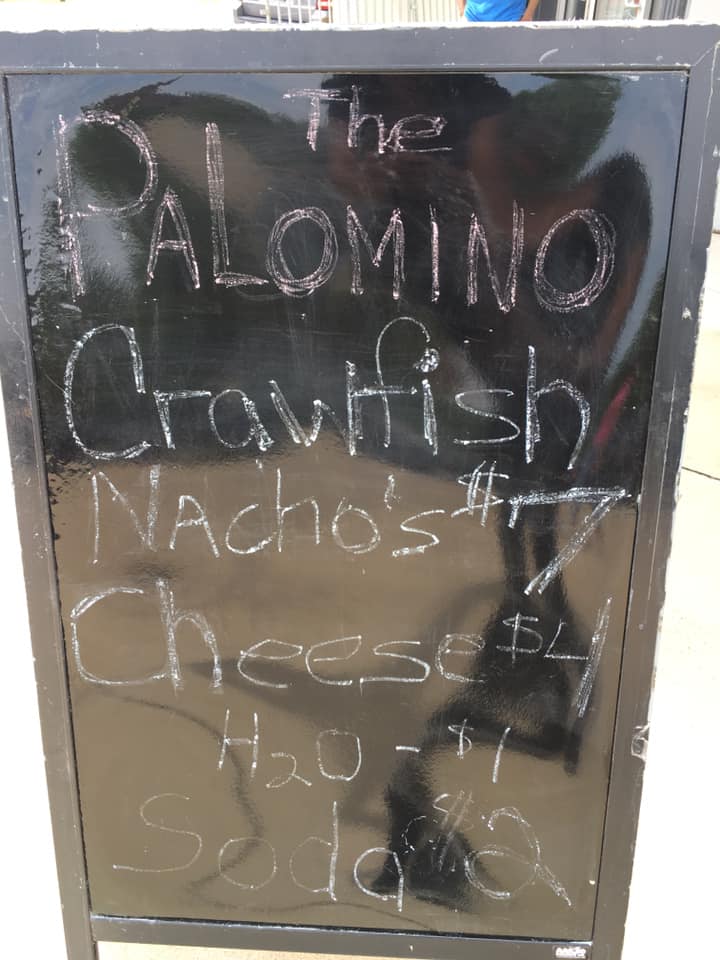 The
PALOMINO
Crawfish
NAcho's $7
Cheese $4
H2O - $1
Soda $2